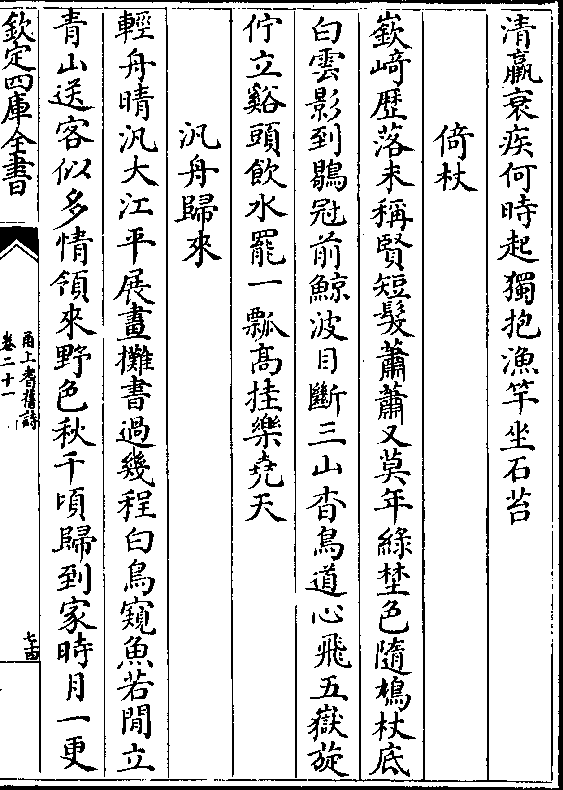 清羸衰疾何時起獨抱漁竿坐石苔
倚杖
嶔﨑歴落未稱賢短髮蕭蕭又莫年綠埜色隨鳩杖底
白雲影到鶡冠前鯨波目斷三山杳鳥道心飛五嶽旋
佇立谿頭飲水罷一瓢高挂樂堯天
汎舟歸來
輕舟晴汎大江平展畫攤書過幾程白鳥窺魚若閒立
青山送客似多情領來野色秋千頃歸到家時月一更
欽定四庫全書
甬上耆舊詩
卷二十一
七十四